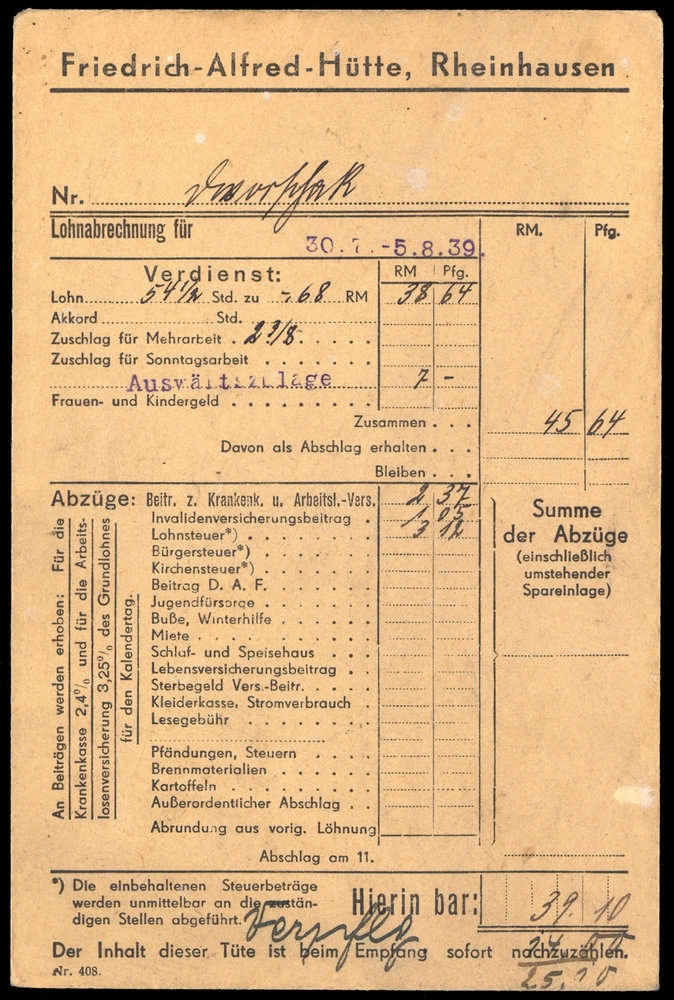 Friedrich-Alfred-Hütte, Rheinhausen
Nr. Dworschak
Lohnabrechnung für 30.7.-5.8.39. RM. Pfg.
Verdienst: RM Pfg.
Lohn 54 1/2 Std. zu -,68 RM 38 64
Akkord Std.
Zuschlag für Mehrarbeit 2 3/8
Zuschlag für Sonntagsarbeit
Auswärtszulage 7 -
Frauen- und Kindergeld
Zusammen 45 64
Davon als Abschlag erhalten
Bleiben
Abzüge: Beitr. z. Krankenk. u. Arbeitsl.-Vers. 2 37
Invalidenversicherungsbeitrag 1 05
Lohnsteuer*) 3 12
Bürgersteuer*)
Kirchensteuer*)
Beitrag D. A. F.
Jugendfürsorge
Buße, Winterhilfe
Miete
Schlaf- und Speisehaus
Lebensversicherungsbeitrag
Sterbegeld Vers.-Beitr.
Kleiderkasse, Stromverbrauch
Lesegebühr
Pfändungen, Steuern
Brennmaterialien
Kartoffeln
Außerordentlicher Abschlag
Abrundung aus vorig. Löhnung
Abschlag am 11.
An Beiträgen werden erhoben: Für die
Krankenkasse 2,4% und für die Arbeits-
losenversicherung 3,25% des Grundlohnes
für den Kalendertag.
Summe
der Abzüge
(einschließlich
umstehender
Spareinlage)
*) Die einbehaltenen Steuerbeträge
werden unmittelbar an die zustän-
digen Stellen abgeführt.
Hierin bar: 39.10
Verpfleg
Der Inhalt dieser Tüte ist beim Empfang sofort nachzuzählen.
Nr. 408.
25.10